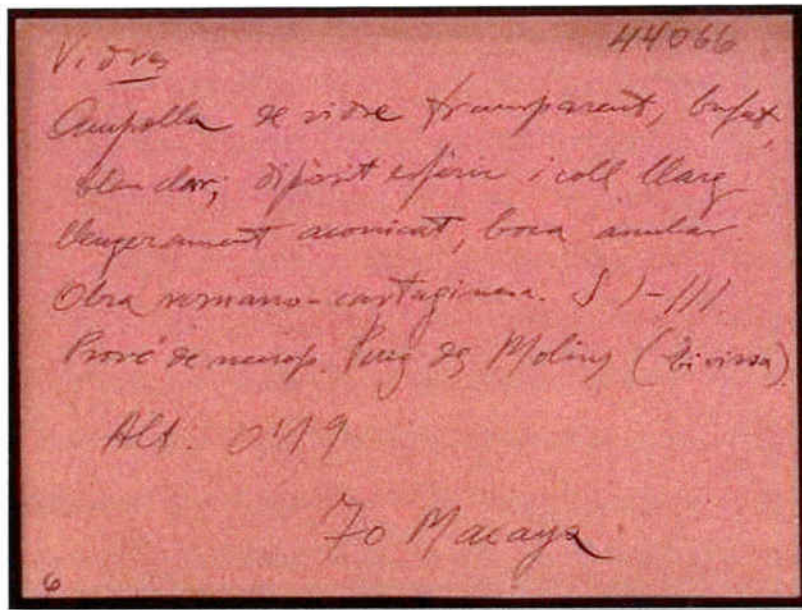 Vidres 44066
Ampolla de vidre transparent, bufat,
clar; dipòsit esfèric i coll llarg
lleugerament aconicat, boca anular.
Obra romano-cartaginesa. S I-III.
Prové de necrop. Puig des Molins (Eivissa)
Alt. 0'19
Macaya
6